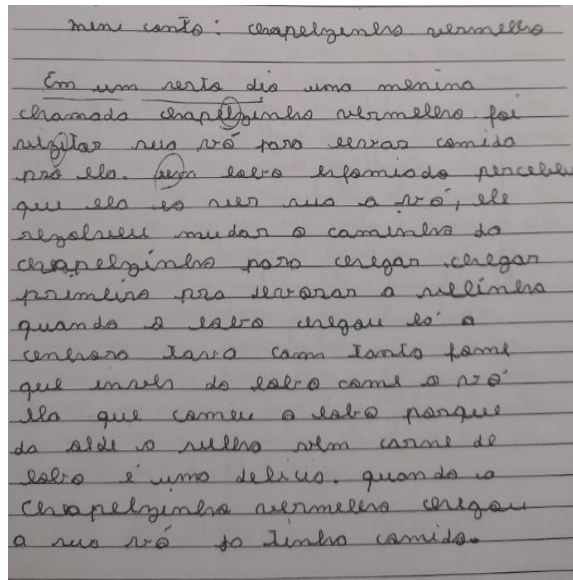 mini conto: chapelzinho vermelho
Em um certo dia uma menina
chamada chapelzinho vermelho foi
vizitar sua vó para levar comida
pra ela. um lobo esfomiado percebeu
que ela ia ver sua a vó, ele
rezolveu mudar o caminho da
chapelzinho para chegar chegar
primeiro pra devorar a velinha
quando o lobo chegou lá a
cenhora tava com tanto fome
que inves do lobo come a vó
ela que comeu o lobo porque
da
carne de
lobo é uma delicia. quando a
chapelzinho vermelho chegou
a sua vó ja tinha comido.